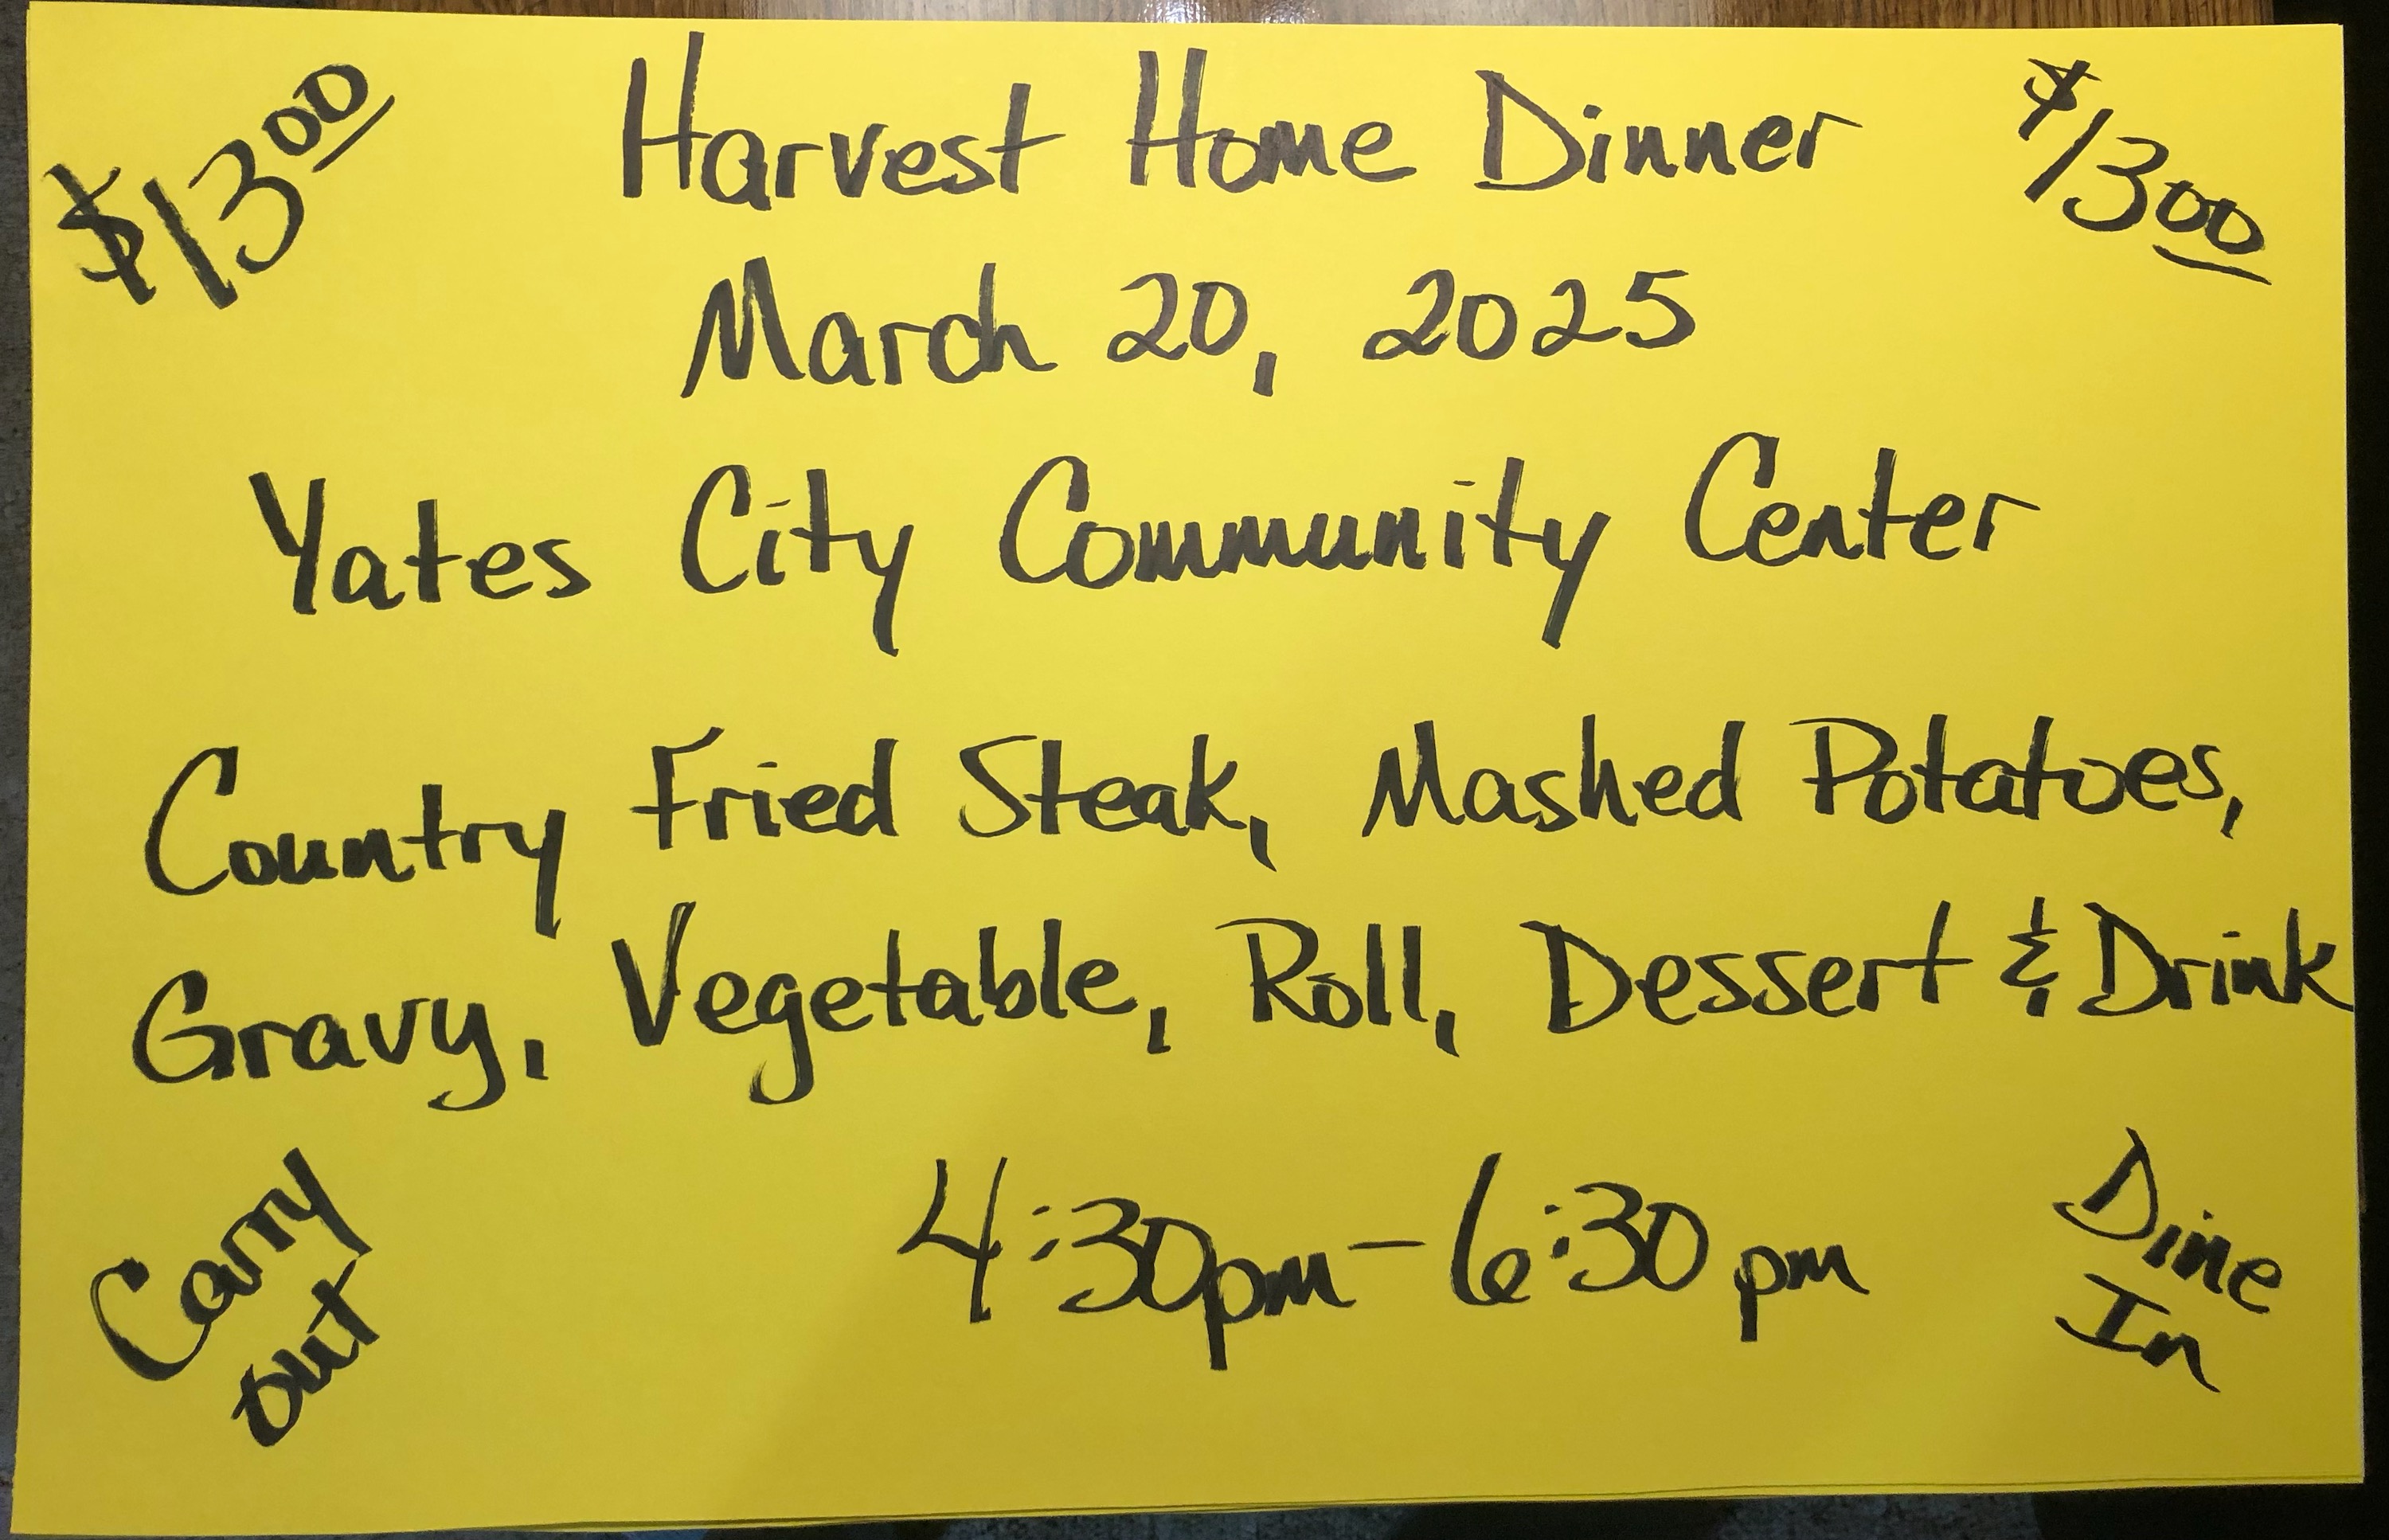 $13.00
Harvest Home Dinner
$13.00
March 20, 2025
Yates City Community Center
Country Fried Steak, Mashed Potatoes,
Gravy, Vegetable, Roll, Dessert & Drink
Carry
out
4:30pm-6:30 pm
Dine
In